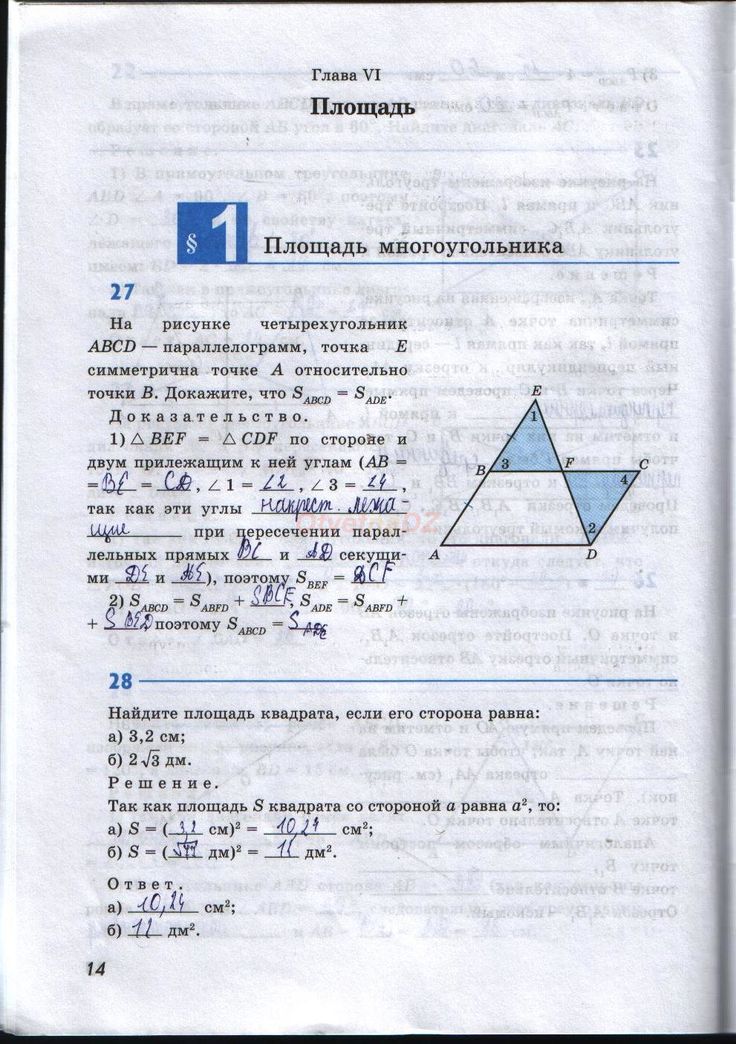 Глава VI
Площадь
§ 1 Площадь многоугольника
27
На рисунке четырехугольник
ABCD — параллелограмм, точка E
симметрична точке A относительно
точки B. Докажите, что S_ABCD = S_ADE.
Доказательство.
1) △ BEF = △ CDF по стороне и
двум прилежащим к ней углам (AB =
= BE = CD, ∠ 1 = ∠2, ∠ 3 = ∠4,
так как эти углы накрест. лежа-
щие при пересечении парал-
лельных прямых BC и AD секущи-
ми DE и AE), поэтому S_BEF = DCF
2) S_ABCD = S_ABFD + S DCF, S_ADE = S_ABFD +
+ S BED поэтому S_ABCD = S_ADE
E
1
B
3
F
C
4
2
A
D
28
Найдите площадь квадрата, если его сторона равна:
а) 3,2 см;
б) 2√3 дм.
Решение.
Так как площадь S квадрата со стороной a равна a², то:
а) S = (3,2 см)² = 10,24 см²;
б) S = (√12 дм)² = 12 дм².
Ответ.
а) 10,24 см²;
б) 12 дм².
14